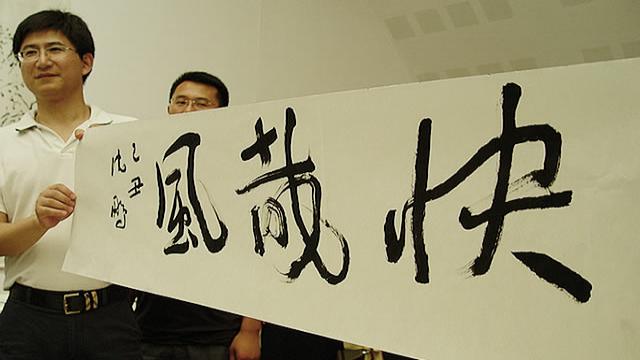 快哉風
己丑
沈鵬